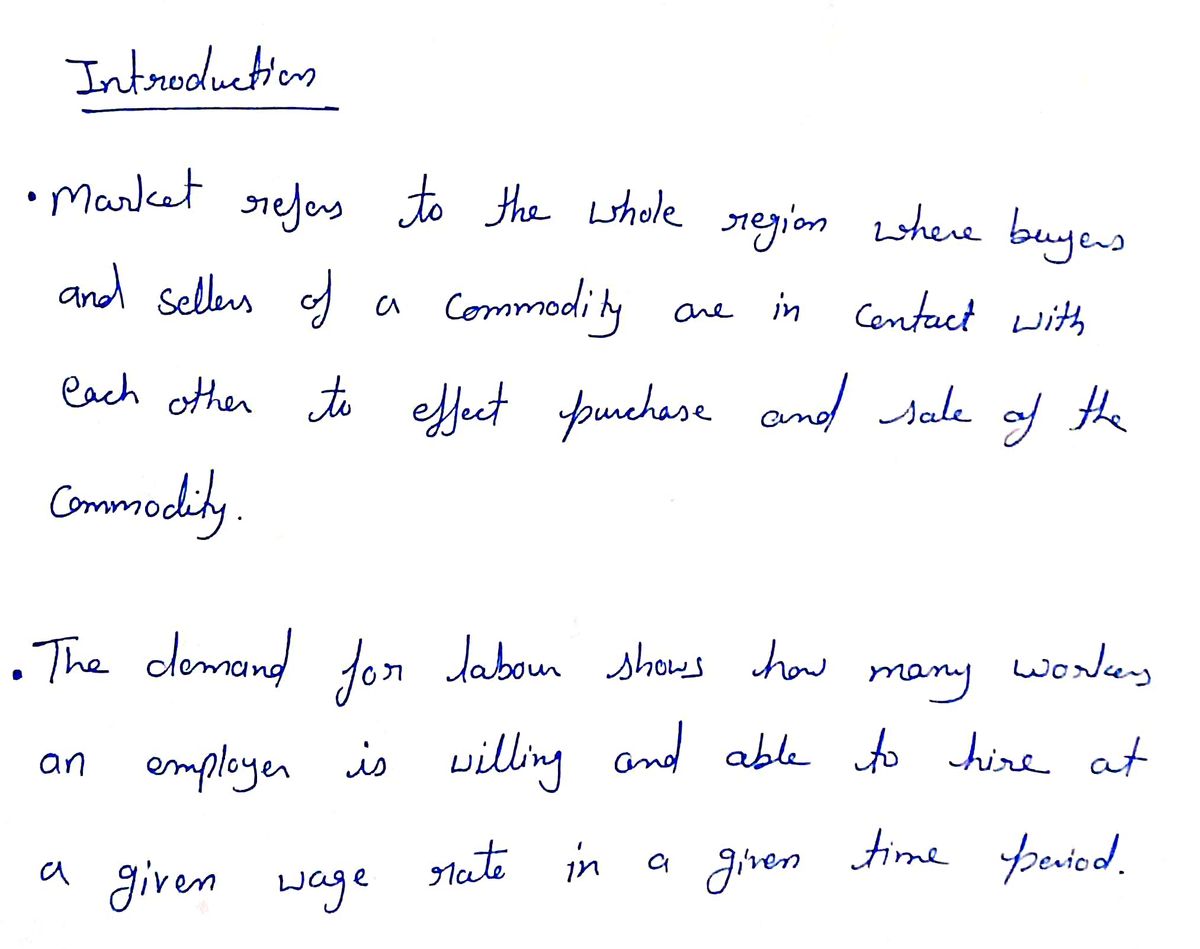 Introduction
• Market refers to the whole region where buyers
and sellers of a commodity are in contact with
each other to effect purchase and sale of the
Commodity.
• The demand for labour shows how many workers
an employer is willing and able to hire at
a given wage rate in a given time period.